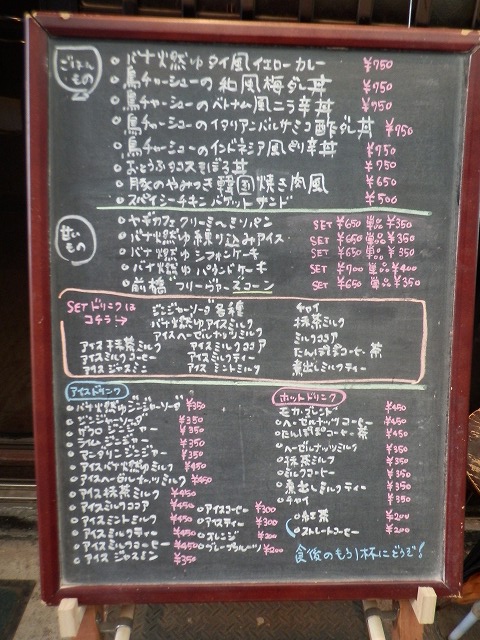 ごはんもの
バナナ燃ゆタイ風イエローカレー ¥750
鳥チャーシューの和風梅ダレ丼 ¥750
鳥チャーシューのベトナム風ニラ辛丼 ¥750
鳥チャーシューのイタリアンバルサミコ酢ダレ丼 ¥750
鳥チャーシューのインドネシア風ピリ辛丼 ¥750
おとうふタコスそぼろ丼 ¥750
豚のやみつき韓国焼き肉風 ¥650
スパイシーチキンバゲットサンド ¥500
甘いもの
SET ¥650 単品 ¥350
バナナ燃ゆ練り込みアイス SET ¥650 単品 ¥350
バナナ燃ゆシフォンケーキ SET ¥650 単品 ¥350
バナナ燃ゆパウンドケーキ SET ¥700 単品 ¥400
前橋フリージャースコーン SET ¥650 単品 ¥350
SETドリンクはコチラ→
ジンジャーソーダ各種 チャイ
バナナ燃ゆアイスミルク 抹茶ミルク
アイスヘーゼルナッツミルク ミルクココア
アイス抹茶ミルク アイスミルクココア たんぽぽコーヒー茶
アイスミルクコーヒー アイスミルクティー 煮出しミルクティー
アイスジャスミン アイスミントミルク
アイスドリンク
バナナ燃ゆジンジャーソーダ ¥350
ジンジャーソーダ ¥350
ザクロジンジャー ¥350
ライムジンジャー ¥350
マーマリンジンジャー ¥350
アイスバナナ燃ゆミルク ¥450
アイスヘーゼルナッツミルク ¥450
アイス抹茶ミルク ¥450
アイスミルクココア ¥450
アイスミントミルク ¥450
アイスミルクティー ¥450
アイスミルクコーヒー ¥450
アイスジャスミン ¥350
アイスコーヒー ¥300
アイスティー ¥300
オレンジ ¥200
グレープフルーツ ¥200
ホットドリンク
モカ・ブレンド ¥450
ヘーゼルナッツコーヒー ¥450
たんぽぽコーヒー茶 ¥450
ヘーゼルナッツミルク ¥350
抹茶ミルク ¥350
ミルクコーヒー ¥350
煮出しミルクティー ¥350
チャイ ¥350
紅茶 ¥200
ストレートコーヒー ¥200
食後のもう1杯にどうぞ!